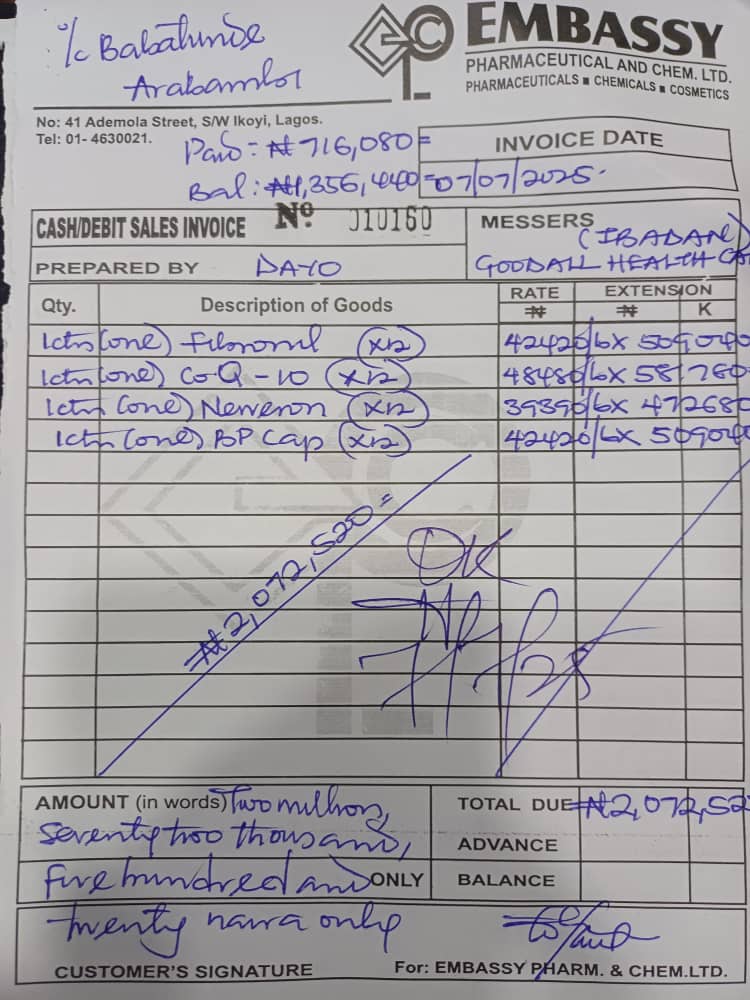 ℅ Babatunde
Arabambi
EMBASSY
PHARMACEUTICAL AND CHEM. LTD.
PHARMACEUTICALS ■ CHEMICALS ■ COSMETICS
No: 41 Ademola Street, S/W Ikoyi, Lagos.
Tel: 01- 4630021.
Paid: ₦716,080=
Bal: ₦1,356,440=
INVOICE DATE
07/07/2025.
CASH/DEBIT SALES INVOICE Nº. 010160
MESSERS (IBADAN)
PREPARED BY DAYO
GOODALL HEALTH
Qty. Description of Goods RATE ₦ EXTENSION ₦ K
1ctn (one) (x12) 42420/6x 509040
1ctn (one) Co-Q-10 (x12) 48480/6x 581760
1ctn (one) Nerveron (x12) 39390/6x 472680
1ctn (one) BP Cap (x12) 42420/6x 509040
₦2,072,520=
OK
AMOUNT (in words) Two million,
seventy two thousand,
five hundred and ONLY
twenty naira only
TOTAL DUE ₦2,072,520
ADVANCE
BALANCE
CUSTOMER'S SIGNATURE
For: EMBASSY PHARM. & CHEM.LTD.